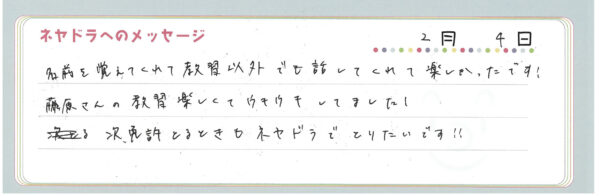 ネヤドラへのメッセージ
2月 4日
名前を覚えてくれて教習以外でも話してくれて楽しかったです!
藤原さんの教習楽しくてウキウキしてました!
次免許とるときもネヤドラでとりたいです!!